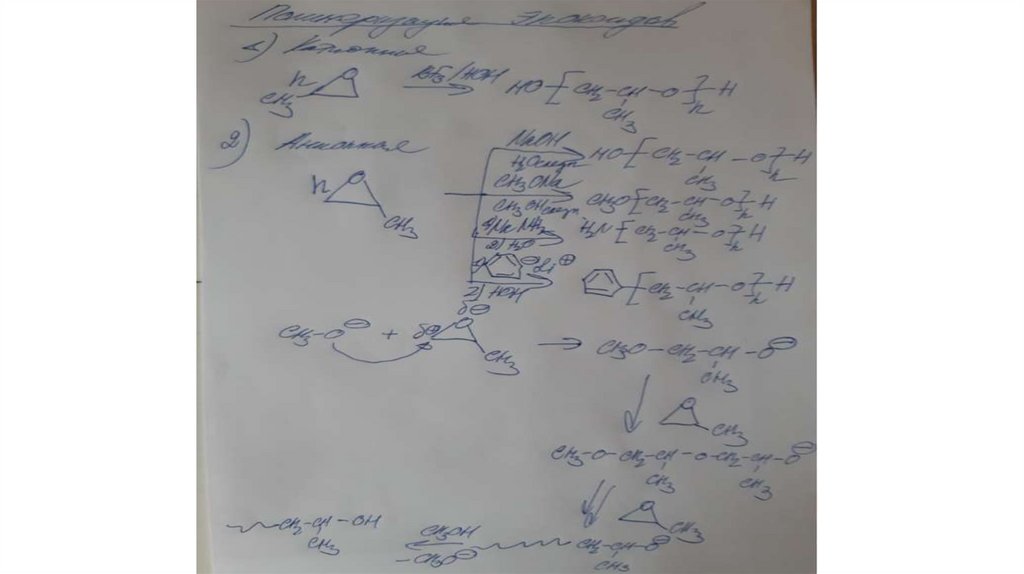 Полимеризация эпоксидов
1) Катионная
n CH3 O BF3/HOH HO [ CH2-CH-O ]n H
CH3
2) Анионная
NaOH
H2O следы
HO [ CH2-CH-O ]n H
CH3
n O CH3
CH3ONa
CH3OH следы
CH3O [ CH2-CH-O ]n H
CH3
1) NaNH2
2) H2O
H2N [ CH2-CH-O ]n H
CH3
1) ⊖ Li⊕
2) HOH
[ CH2-CH-O ]n H
CH3
CH3-O⊖ + δ⊕ O δ⊖ CH3 → CH3O-CH2-CH-O⊖
CH3
O CH3
CH3-O-CH2-CH-O-CH2-CH-O⊖
CH3 CH3
O CH3
CH2-CH-OH CH3OH CH2-CH-O⊖
CH3 -CH3O⊖ CH3